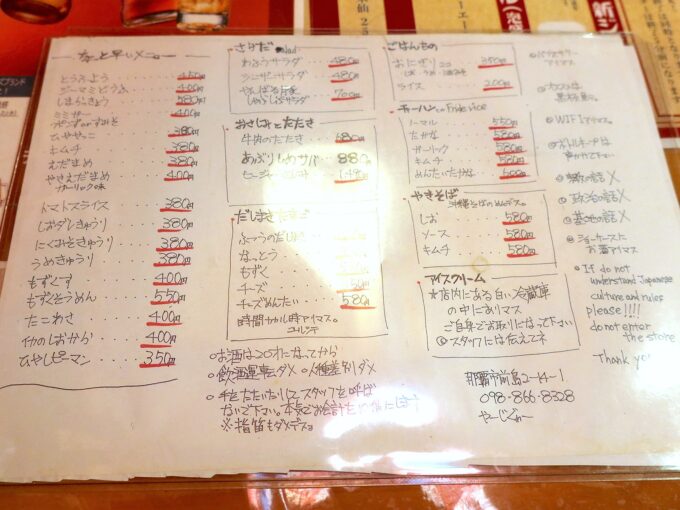 ちょっと早いメニュー
とうふよう 450円
ジーマミどうふ 400円
しまらっきょう 580円
ミミガー 400円
ポンズorすみそ
ひややっこ 380円
キムチ 380円
えだまめ 380円
やきえだまめ 400円
ガーリック味
トマトスライス 380円
しおダレきゅうり 380円
にくみそきゅうり 380円
うめきゅうり 380円
もずくす 400円
もずくそうめん 550円
たこわさ 400円
イカのしおから 400円
ひやしピーマン 350円
さらだ Salad
わふうサラダ 480円
シーザーサラダ 480円
サラダ 700円
おさしみとたたき
牛肉のたたき 680円
あぶりしめサバ 880円
だしまきたまご
ふつうのだしまき
なっとう
もずく
チーズ
チーズめんたい 580円
時間かかる時アイマス。
ごはんもの
おにぎり 2コ 350円
ライス 200円
チャーハン Fried rice
ノーマル 550円
たかな 580円
ガーリック 580円
キムチ 580円
めんたいたかな 580円
やきそば
沖縄そばのめんデス。
しお 580円
ソース 580円
キムチ 580円
アイスクリーム
★店内にある白い冷蔵庫
の中にありマス
ご自身でお取りになって下さい
スタッフには伝えてネ
○お酒は20才になってから
○飲酒運転ダメ ○人種差別ダメ
○手をたたいたりしてスタッフを呼ば
ないで下さい。本気でお会計
※指笛もダメデスョ
那覇市前島2-14-1
098-866-8328
やーじぐゎー
WiFiアリマス。
ボトルキープは
政治の話×
基地の話×
ショーケースに
お酒アイマス
If do not
understand Japanese
culture and rules
please!!!!
do not enter
the store
Thank you